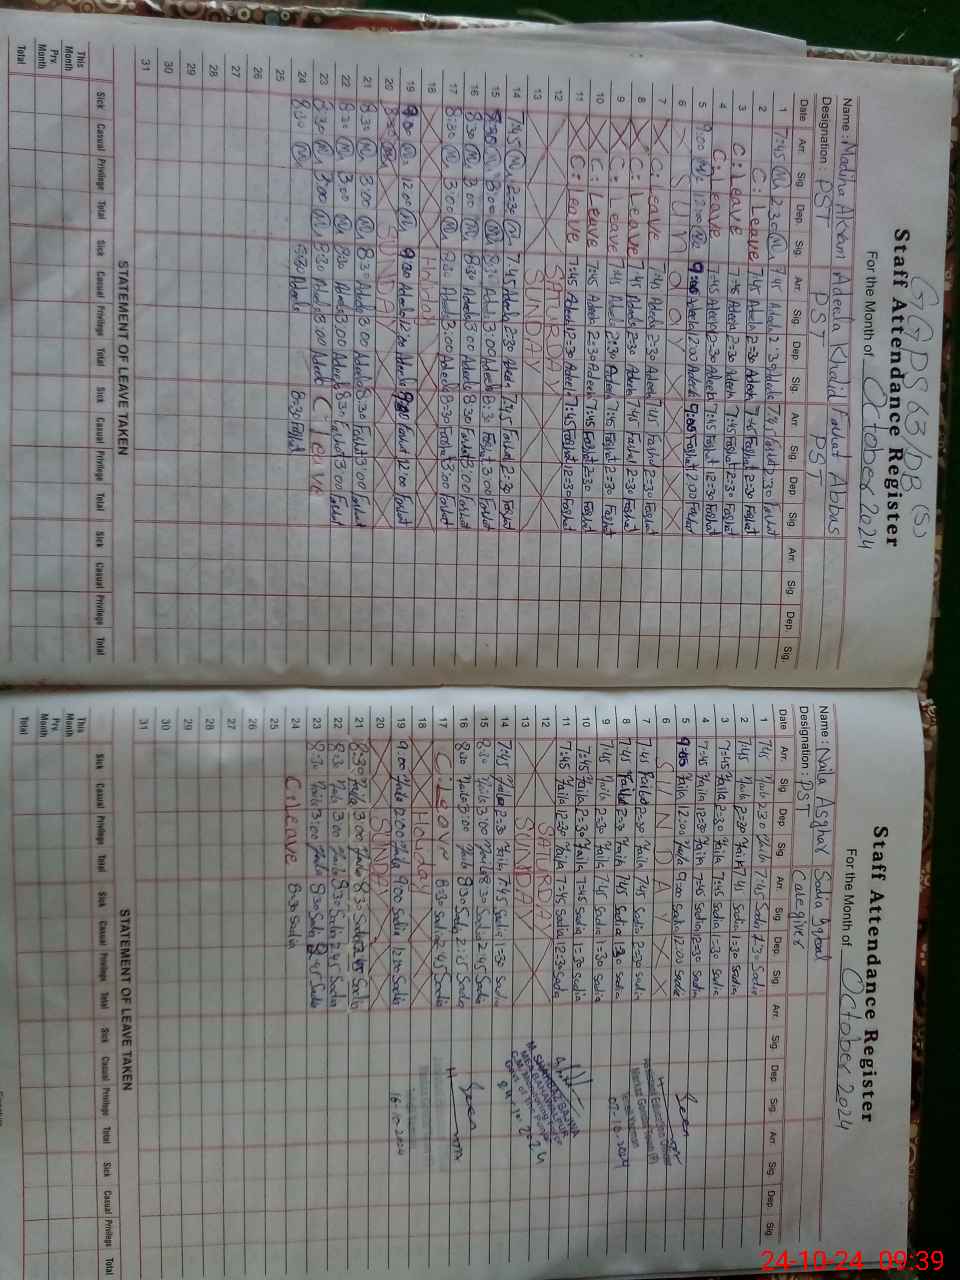 GGPS 63/DB (S)
Staff Attendance Register
For the Month of October 2024
Name : Madiha Akram Adeela Khalid Farhat Abbas
Designation : PST PST PST
Date Arr. Sig. Dep. Sig. Arr. Sig. Dep. Sig. Arr. Sig. Dep. Sig. Arr. Sig. Dep. Sig.
1 7:45 2:30 7:45 Adeela 2:30 Adeela 7:45 Farhat 2:30 Farhat
2 C: Leave 7:45 Adeela 2:30 Adeela 7:45 Farhat 2:30 Farhat
3 C: Leave 7:45 Adeela 2:30 Adeela 7:45 Farhat 2:30 Farhat
4 C: Leave 7:45 Adeela 2:30 Adeela 7:45 Farhat 2:30 Farhat
5 9:00 12:00 9:00 Adeela 12:00 Adeela 9:00 Farhat 12:00 Farhat
6 SUNDAY
7 C: Leave 7:45 Adeela 2:30 Adeela 7:45 Farhat 2:30 Farhat
8 C: Leave 7:45 Adeela 2:30 Adeela 7:45 Farhat 2:30 Farhat
9 C: Leave 7:45 Adeela 2:30 Adeela 7:45 Farhat 2:30 Farhat
10 C: Leave 7:45 Adeela 2:30 Adeela 7:45 Farhat 2:30 Farhat
11 C: Leave 7:45 Adeela 12:30 Adeela 7:45 Farhat 12:30 Farhat
12 SATURDAY
13 SUNDAY
14 7:45 2:30 7:45 Adeela 2:30 Adeela 7:45 Farhat 2:30 Farhat
15 8:30 3:00 8:30 Adeela 3:00 Adeela 8:30 Farhat 3:00 Farhat
16 8:30 3:00 8:30 Adeela 3:00 Adeela 8:30 Farhat 3:00 Farhat
17 8:30 3:00 8:30 Adeela 3:00 Adeela 8:30 Farhat 3:00 Farhat
18 Holiday
19 9:00 12:00 9:30 Adeela 12:00 Adeela 9:00 Farhat 12:00 Farhat
20 SUNDAY
21 8:30 3:00 8:30 Adeela 3:00 Adeela 8:30 Farhat 3:00 Farhat
22 8:30 3:00 8:30 Adeela 3:00 Adeela 8:30 Farhat 3:00 Farhat
23 8:30 3:00 8:30 Adeela 3:00 Adeela C: Leave
24 8:30 8:30 Adeela 8:30 Farhat
25
26
27
28
29
30
31
STATEMENT OF LEAVE TAKEN
Sick Casual Privilege Total Sick Casual Privilege Total Sick Casual Privilege Total Sick Casual Privilege Total
This Month
Prv. Month
Total
Staff Attendance Register
For the Month of October 2024
Name : Naila Asghar Sadia Iqbal
Designation : PST Caregiver
Date Arr. Sig. Dep. Sig. Arr. Sig. Dep. Sig. Arr. Sig. Dep. Sig. Arr. Sig. Dep. Sig.
1 7:45 Naila 2:30 Naila 7:45 Sadia 1:30 Sadia
2 7:45 Naila 2:30 Naila 7:45 Sadia 1:30 Sadia
3 7:45 Naila 2:30 Naila 7:45 Sadia 1:30 Sadia
4 7:45 Naila 12:30 Naila 7:45 Sadia 12:30 Sadia
5 9:00 Naila 12:00 Naila 9:00 Sadia 12:00 Sadia
6 SUNDAY
7 7:45 Naila 2:30 Naila 7:45 Sadia 2:00 Sadia
8 7:45 Naila 2:30 Naila 7:45 Sadia 1:30 Sadia
9 7:45 Naila 2:30 Naila 7:45 Sadia 1:30 Sadia
10 7:45 Naila 2:30 Naila 7:45 Sadia 1:30 Sadia
11 7:45 Naila 12:30 Naila 7:45 Sadia 12:30 Sadia
12 SATURDAY
13 SUNDAY
14 7:45 Naila 2:30 Naila 7:45 Sadia 1:30 Sadia
15 8:30 Naila 3:00 Naila 8:30 Sadia 2:45 Sadia
16 8:30 Naila 3:00 Naila 8:30 Sadia Sadia
17 C: Leave 8:30 Sadia 2:45 Sadia
18 Holiday
19 9:00 Naila 12:00 Naila 9:00 Sadia 12:00 Sadia
20 SUNDAY
21 8:30 Naila 3:00 Naila 8:30 Sadia 2:45 Sadia
22 8:30 Naila 3:00 Naila 8:30 Sadia 2:45 Sadia
23 8:30 Naila 3:00 Naila 8:30 Sadia 2:45 Sadia
24 C: Leave 8:30 Sadia
25
26
27
28
29
30
31
Seen
07-10-2024
Seen
16-10-2024
STATEMENT OF LEAVE TAKEN
Sick Casual Privilege Total Sick Casual Privilege Total Sick Casual Privilege Total Sick Casual Privilege Total
This Month
Prv. Month
Total
24-10-24 09:39